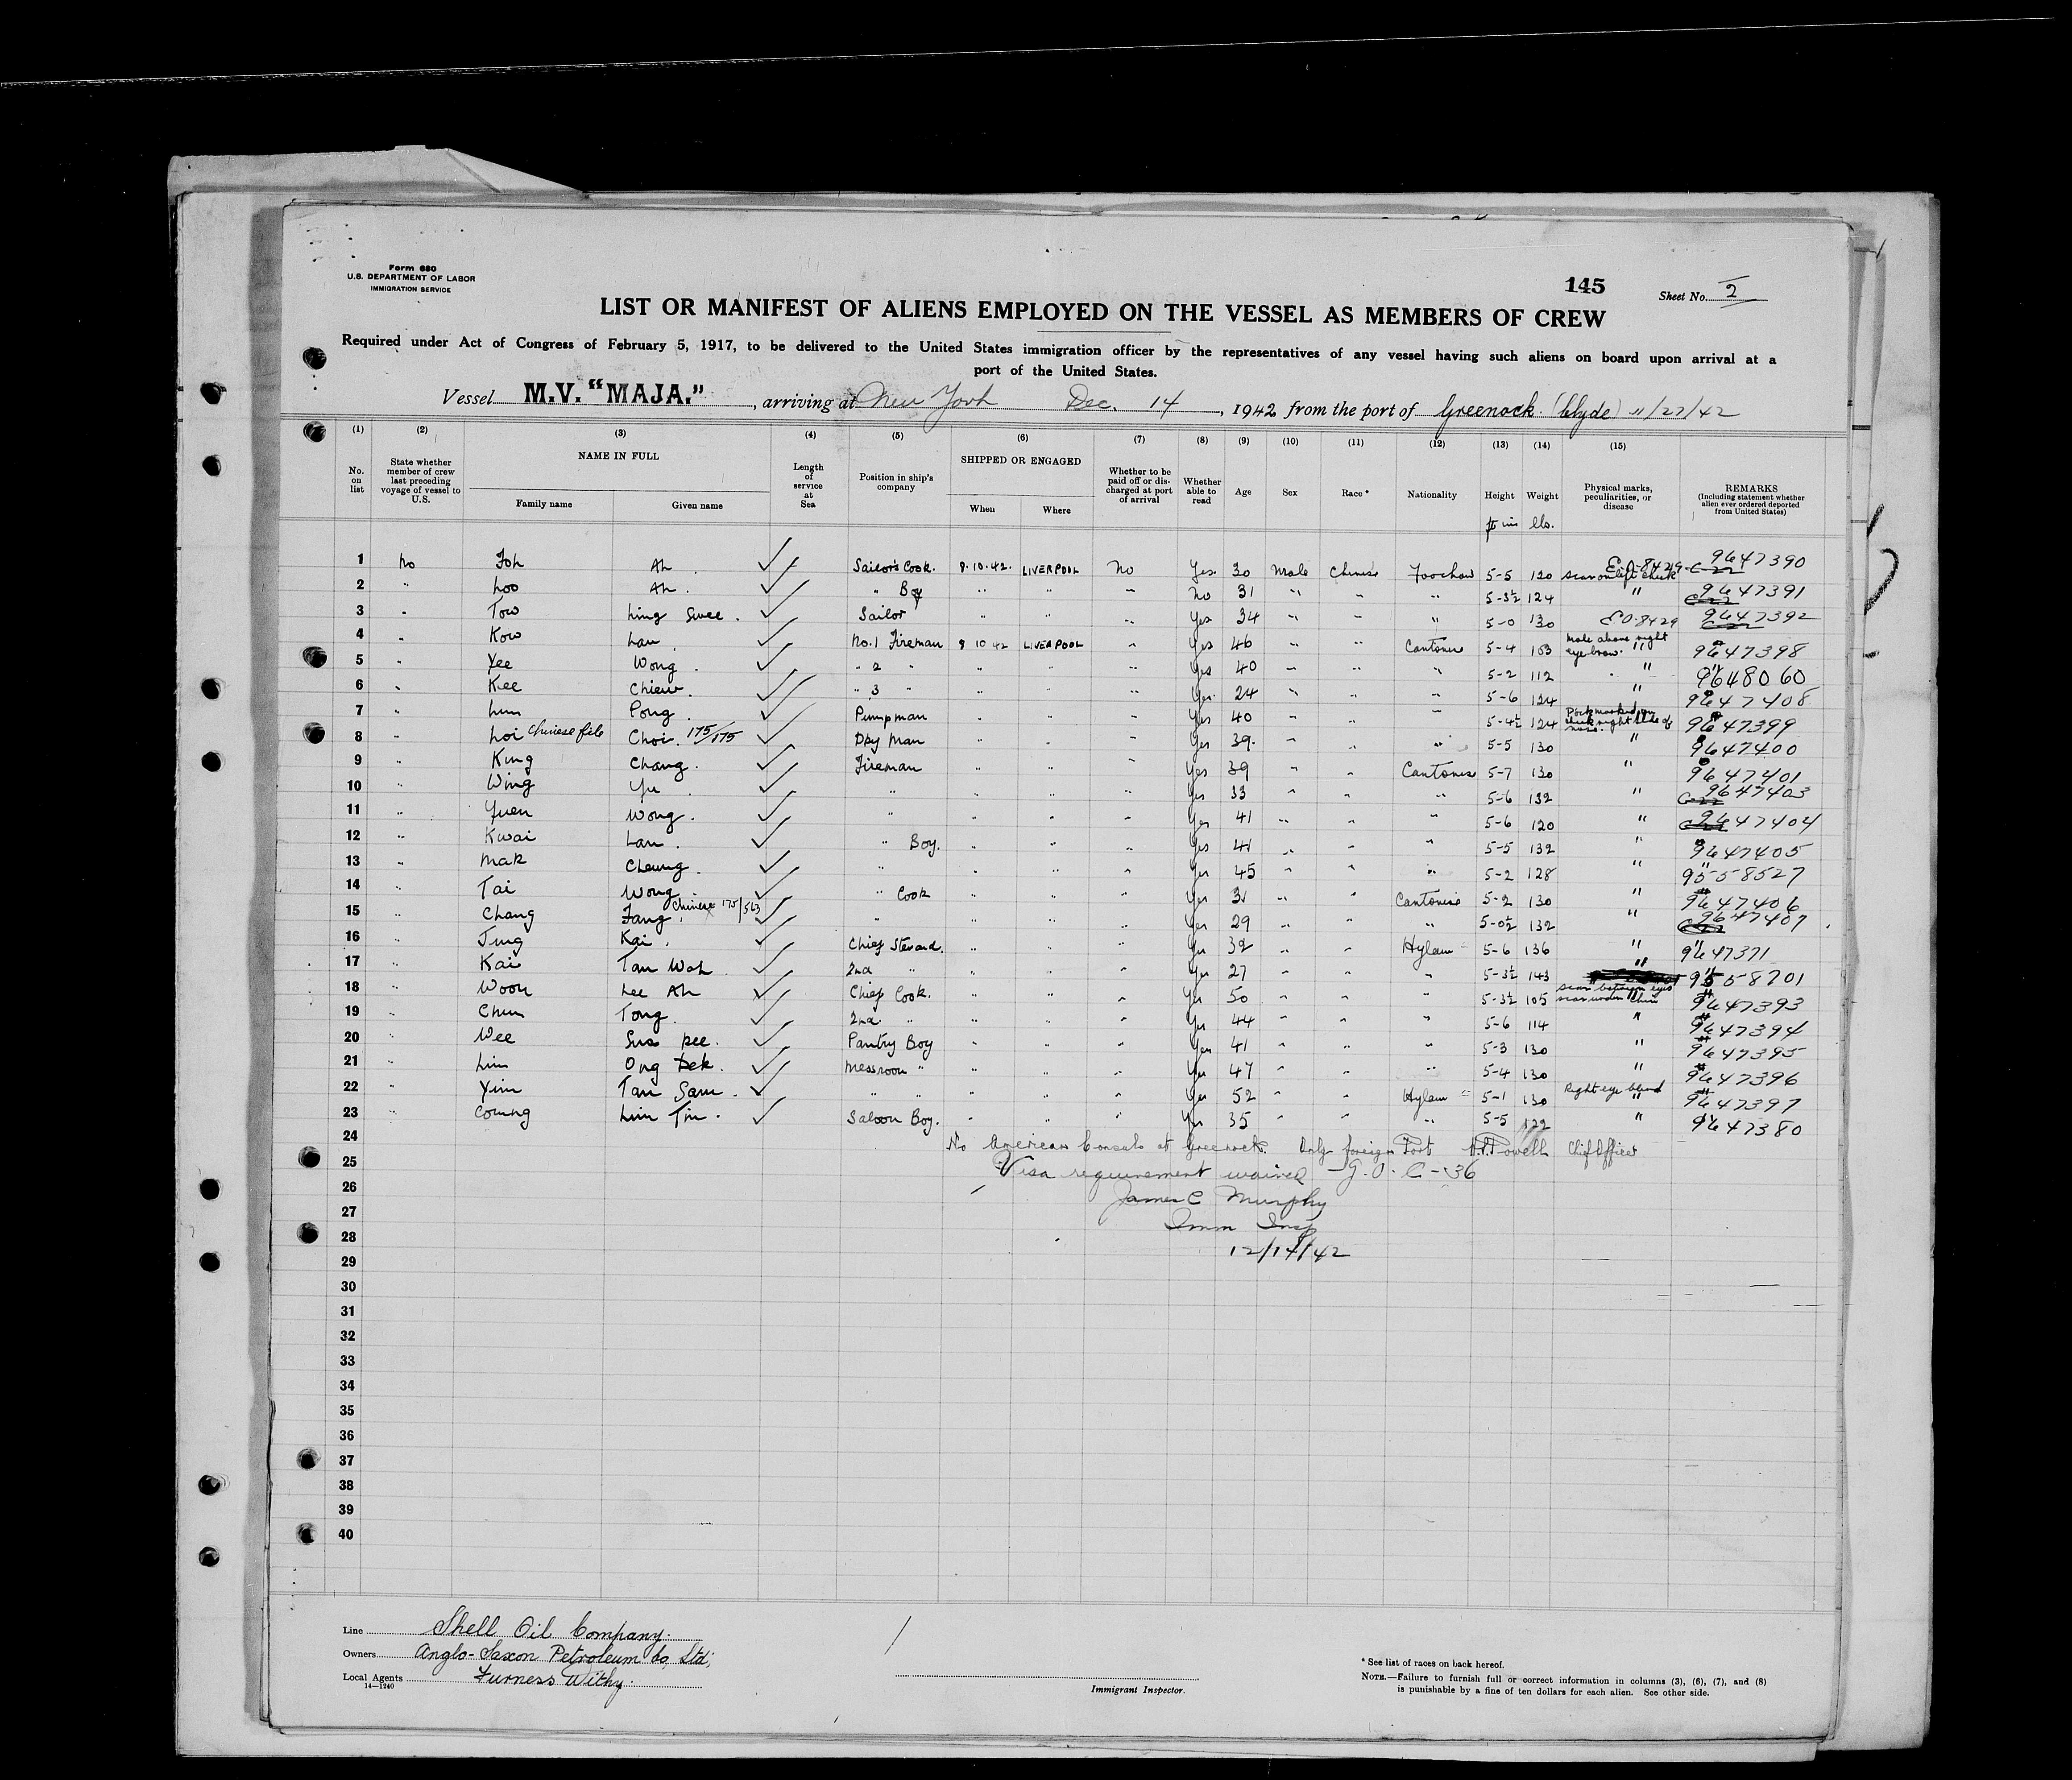 Form 680
U.S. DEPARTMENT OF LABOR
IMMIGRATION SERVICE
145
Sheet No. 2
LIST OR MANIFEST OF ALIENS EMPLOYED ON THE VESSEL AS MEMBERS OF CREW
Required under Act of Congress of February 5, 1917, to be delivered to the United States immigration officer by the representatives of any vessel having such aliens on board upon arrival at a
port of the United States.
Vessel M.V. "MAJA." , arriving at New York Dec. 14 , 1942 from the port of Greenock (Clyde) 11/27/42
(1) (2) (3) (4) (5) (6) (7) (8) (9) (10) (11) (12) (13) (14) (15)
No. on list State whether member of crew last preceding voyage of vessel to U.S. NAME IN FULL Family name Given name Length of service at Sea Position in ship's company SHIPPED OR ENGAGED When Where Whether to be paid off or discharged at port of arrival Whether able to read Age Sex Race * Nationality Height Weight Physical marks, peculiarities, or disease REMARKS (Including statement whether alien ever ordered deported from United States)
ft ins lbs.
1 No Foh Ah . Sailor's Cook. 8.10.42. LIVERPOOL No Yes. 30 Male Chinese Foochow 5-5 120 E.O.8429 scar on left cheek 9647390
2 " Loo Ah . " Boy " " " No 31 " " " 5-3½ 124 " 9647391
3 " Tow Ling Swee . Sailor " " " Yes 34 " " " 5-0 130 E.O.8429 9647392
4 " Kow Lau . No.1 Fireman 8 10 42 LIVERPOOL " Yes 46 " " Cantonese 5-4 103 Mole above right eye brow. " 9647398
5 " Yee Wong . " 2 " " " " Yes 40 " " " 5-2 112 " 9648060
6 " Kee Chiew . " 3 " " " " Yes. 24 " " " 5-6 124 " 9647408
7 " Lum Pong . Pumpman " " " Yes 40 " " " 5-4½ 124 Pockmarked on cheek right side of nose. 9647399
8 " Loi Chinese file Choi. 175/175 Dpy Man " " " Yes 39. " " " 5-5 130 " 9647400
9 " King Chang . Fireman " " " Yes 39 " " Cantonese 5-7 130 " 9647401
10 " Wing Yu . " " " " Yes 33 " " " 5-6 132 " 9647403
11 " Yuen Wong . " " " " Yes 41 " " " 5-6 120 " 9647404
12 " Kwai Lau . " Boy. " " " Yes 41 " " " 5-5 132 " 9647405
13 " Mak Cheung . " " " " Yes 45 " " " 5-2 128 " 9558527
14 " Tai Wong " Cook " " " Yes 31 " " Cantonese 5-2 130 " 9647406
15 " Chang Fang . Chinese 175/563 " " " " Yes 29 " " " 5-0½ 132 " 9647407
16 " Jung Kai . Chief Steward. " " " Yes 32 " " Hylam 5-6 136 " 9647371
17 " Kai Tan Wah . 2nd " " " " Yes 27 " " " 5-3½ 143 " 9558701
18 " Woon Lee Ah Chief Cook. " " " Yes 50 " " " 5-3½ 105 scar between eyes scar under chin 9647393
19 " Chun Tong . 2nd " " " " Yes 44 " " " 5-6 114 " 9647394
20 " Wee Sua Pee. Pantry Boy " " " Yes 41 " " " 5-3 130 " 9647395
21 " Lim Ong Dek . Messroom " " " " Yes 47 " " " 5-4 130 " 9647396
22 " Yim Tan Sam . " " " " " Yes 52 " " Hylam 5-1 130 Right eye blind " 9647397
23 " Lim Tin . Saloon Boy. " " " Yes 35 " " " 5-5 122 " 9647380
24 No American Consuls at Greenock. Only foreign Port H.T. Powell Chief Officer
25 Visa requirement waived - G.O. C-36
26 James C Murphy
27 Imm Insp
28 12/14/42
29
30
31
32
33
34
35
36
37
38
39
40
Line Shell Oil Company.
Owners Anglo-Saxon Petroleum Co, Ltd;
Local Agents Furness Withy.
14—1240
Immigrant Inspector.
* See list of races on back hereof.
NOTE.—Failure to furnish full or correct information in columns (3), (6), (7), and (8)
is punishable by a fine of ten dollars for each alien. See other side.